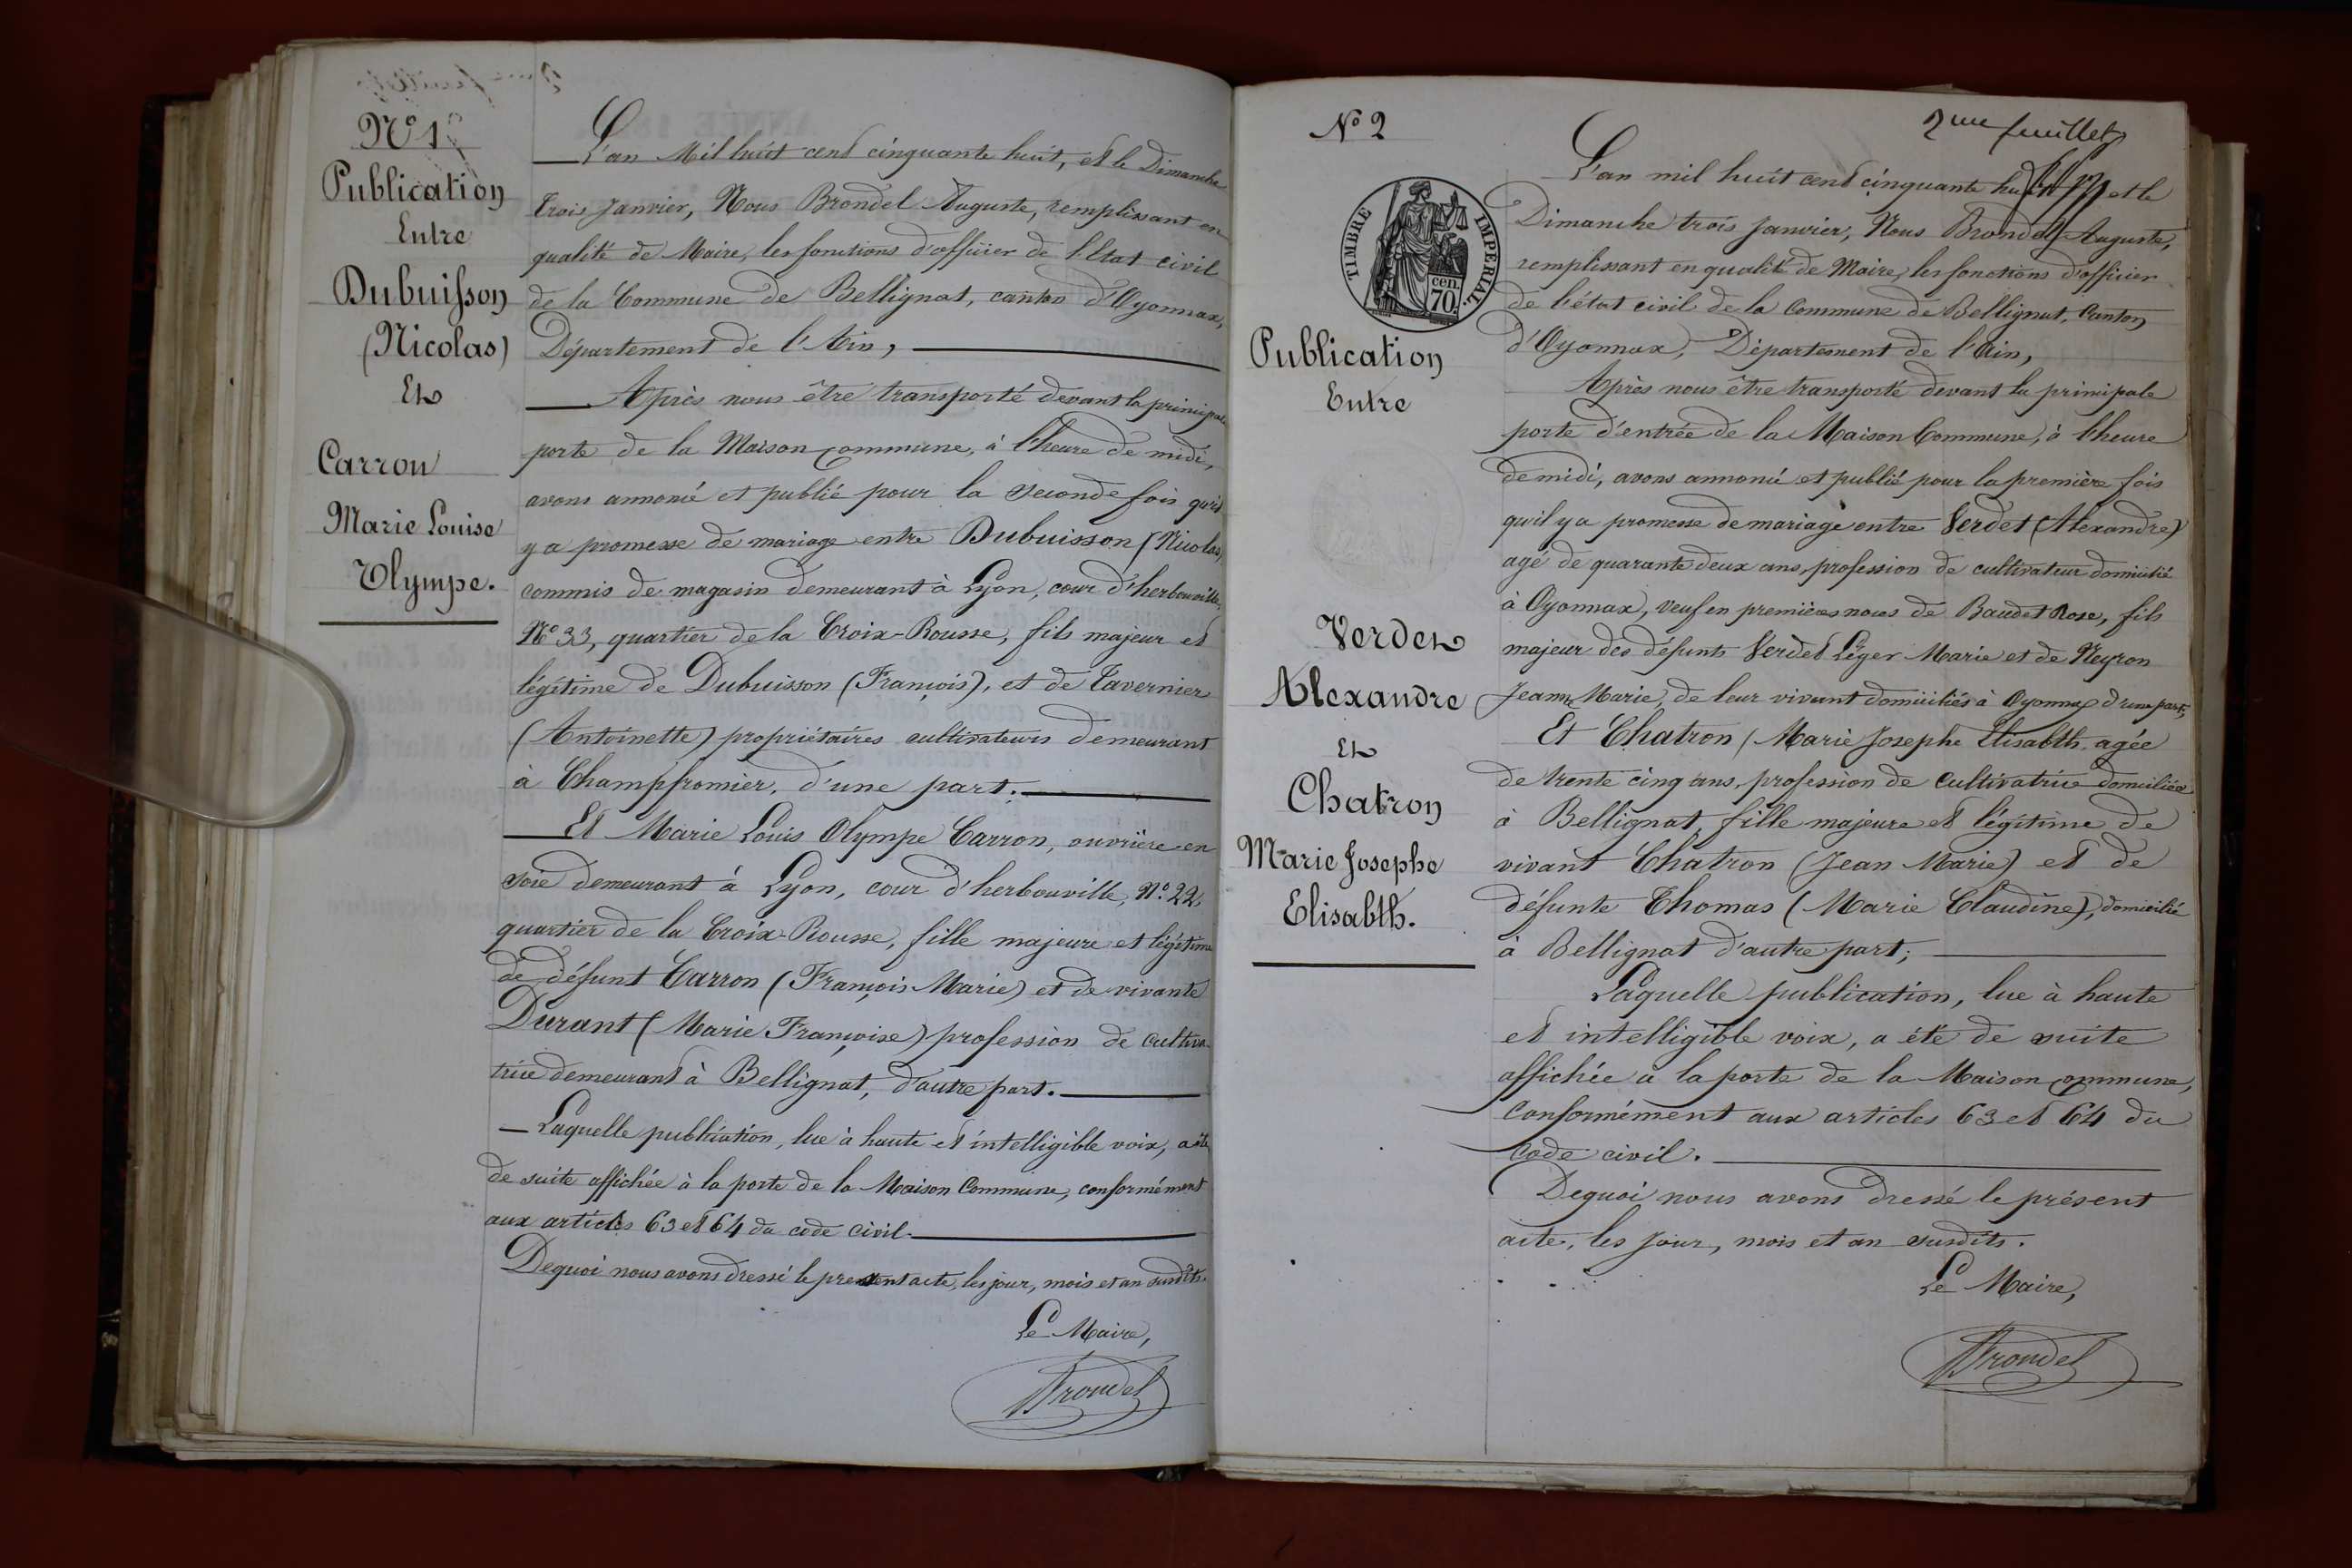 N° 1
Publication
Entre
Dubuisson
(Nicolas)
Et
Carron
Marie Louise
Olympe.
L'an Mil huit cent cinquante huit, et le Dimanche
trois Janvier, Nous Brondel Auguste, remplissant en
qualité de Maire, les fonctions d'officier de l'Etat civil
de la Commune de Bellignat, canton d'Oyonnax,
Département de l'Ain,
Après nous être transporté devant la principale
porte de la Maison Commune, à l'heure de midi,
avons annoncé et publié pour la seconde fois qu'il
y a promesse de mariage entre Dubuisson (Nicolas)
commis de magasin demeurant à Lyon, cour d'herbouville,
N° 33, quartier de la Croix-Rousse, fils majeur et
légitime de Dubuisson (François), et de Tavernier
(Antoinette) propriétaires cultivateurs demeurant
à Champfromier, d'une part.
Et Marie Louis Olympe Carron, ouvrière en
soie demeurant à Lyon, cour d'herbouville, N° 22,
quartier de la Croix-Rousse, fille majeure et légitime
de défunt Carron (François Marie) et de vivante
Durant (Marie Françoise) profession de cultiva-
trice demeurant à Bellignat, d'autre part.
Laquelle publication, lue à haute et intelligible voix, a été
de suite affichée à la porte de la Maison Commune, conformément
aux articles 63 et 64 du code civil.
Dequoi nous avons dressé le present acte, les jour, mois et an susdits.
Le Maire,
Brondel
N° 2
2me feuillet
TIMBRE IMPERIAL.
70. cen.
Publication
Entre
Verdet
Alexandre
Et
Chatron
Marie Josephe
Elisabth.
L'an mil huit cent cinquante huit et le
Dimanche trois Janvier, Nous Brondel Auguste,
remplissant en qualité de Maire, les fonctions d'officier
de l'état civil de la Commune de Bellignat, Canton
d'Oyonnax, Département de l'Ain,
Après nous être transporté devant la principale
porte d'entrée de la Maison Commune, à l'heure
de midi, avons annoncé et publié pour la première fois
qu'il y a promesse de mariage entre Verdet (Alexandre)
agé de quarante deux ans, profession de cultivateur domicilié
à Oyonnax, veuf en premières noces de Baudet Rose, fils
majeur des défunts Verdet Léger Marie et de Neyron
Jeanne Marie, de leur vivant domiciliés à Oyonnax d'une part,
Et Chatron (Marie Josephe Elisabth, agée
de trente cinq ans, profession de cultivatrice domiciliée
à Bellignat, fille majeure et légitime de
vivant Chatron (Jean Marie) et de
défunte Thomas (Marie Claudine), domicilié
à Bellignat d'autre part;
Laquelle publication, lue à haute
et intelligible voix, a été de suite
affichée à la porte de la Maison Commune,
conformément aux articles 63 et 64 du
Code civil.
Dequoi nous avons dressé le présent
acte, les jour, mois et an susdits.
Le Maire,
Brondel